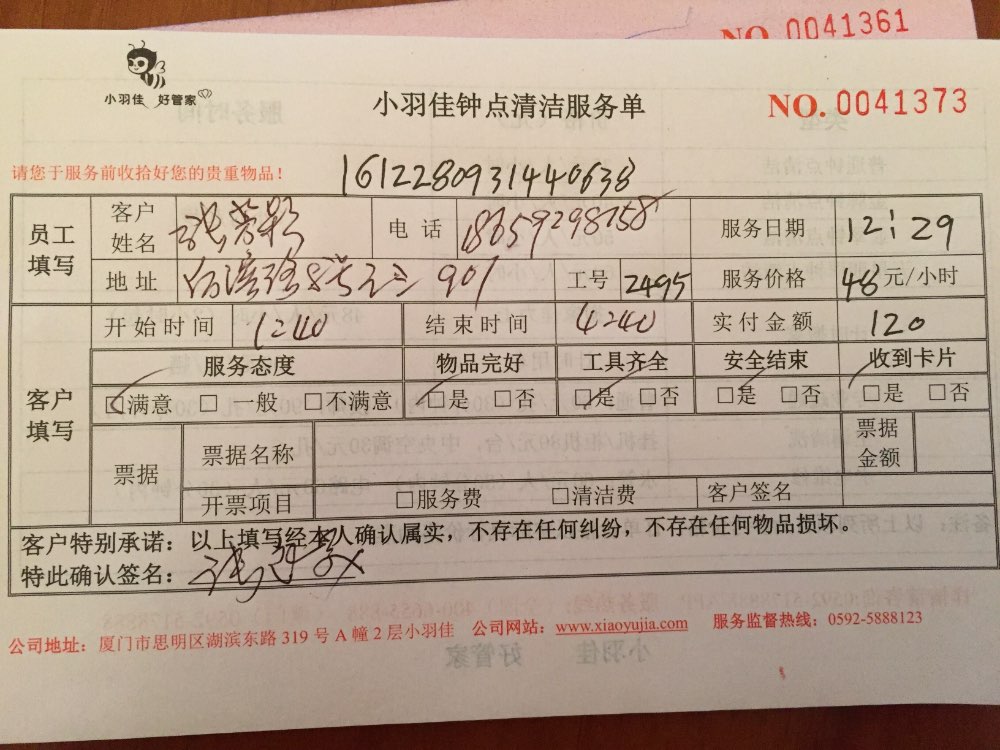 NO. 0041361
小羽佳 好管家
小羽佳钟点清洁服务单
NO. 0041373
请您于服务前收拾好您的贵重物品！
1612280931440638
员工填写 客户姓名 电话 服务日期 12:29
地址 901 工号 2495 服务价格 48元/小时
开始时间 1240 结束时间 4240 实付金额 120
客户填写 服务态度 物品完好 工具齐全 安全结束 收到卡片
☐满意 ☐一般 ☐不满意 ☐是 ☐否 ☐是 ☐否 ☐是 ☐否 ☐是 ☐否
票据 票据名称 票据金额
开票项目 ☐服务费 ☐清洁费 客户签名
客户特别承诺：以上填写经本人确认属实，不存在任何纠纷，不存在任何物品损坏。
特此确认签名：
公司地址：厦门市思明区湖滨东路319号A幢2层小羽佳 公司网站：www.xiaoyujia.com 服务监督热线：0592-5888123